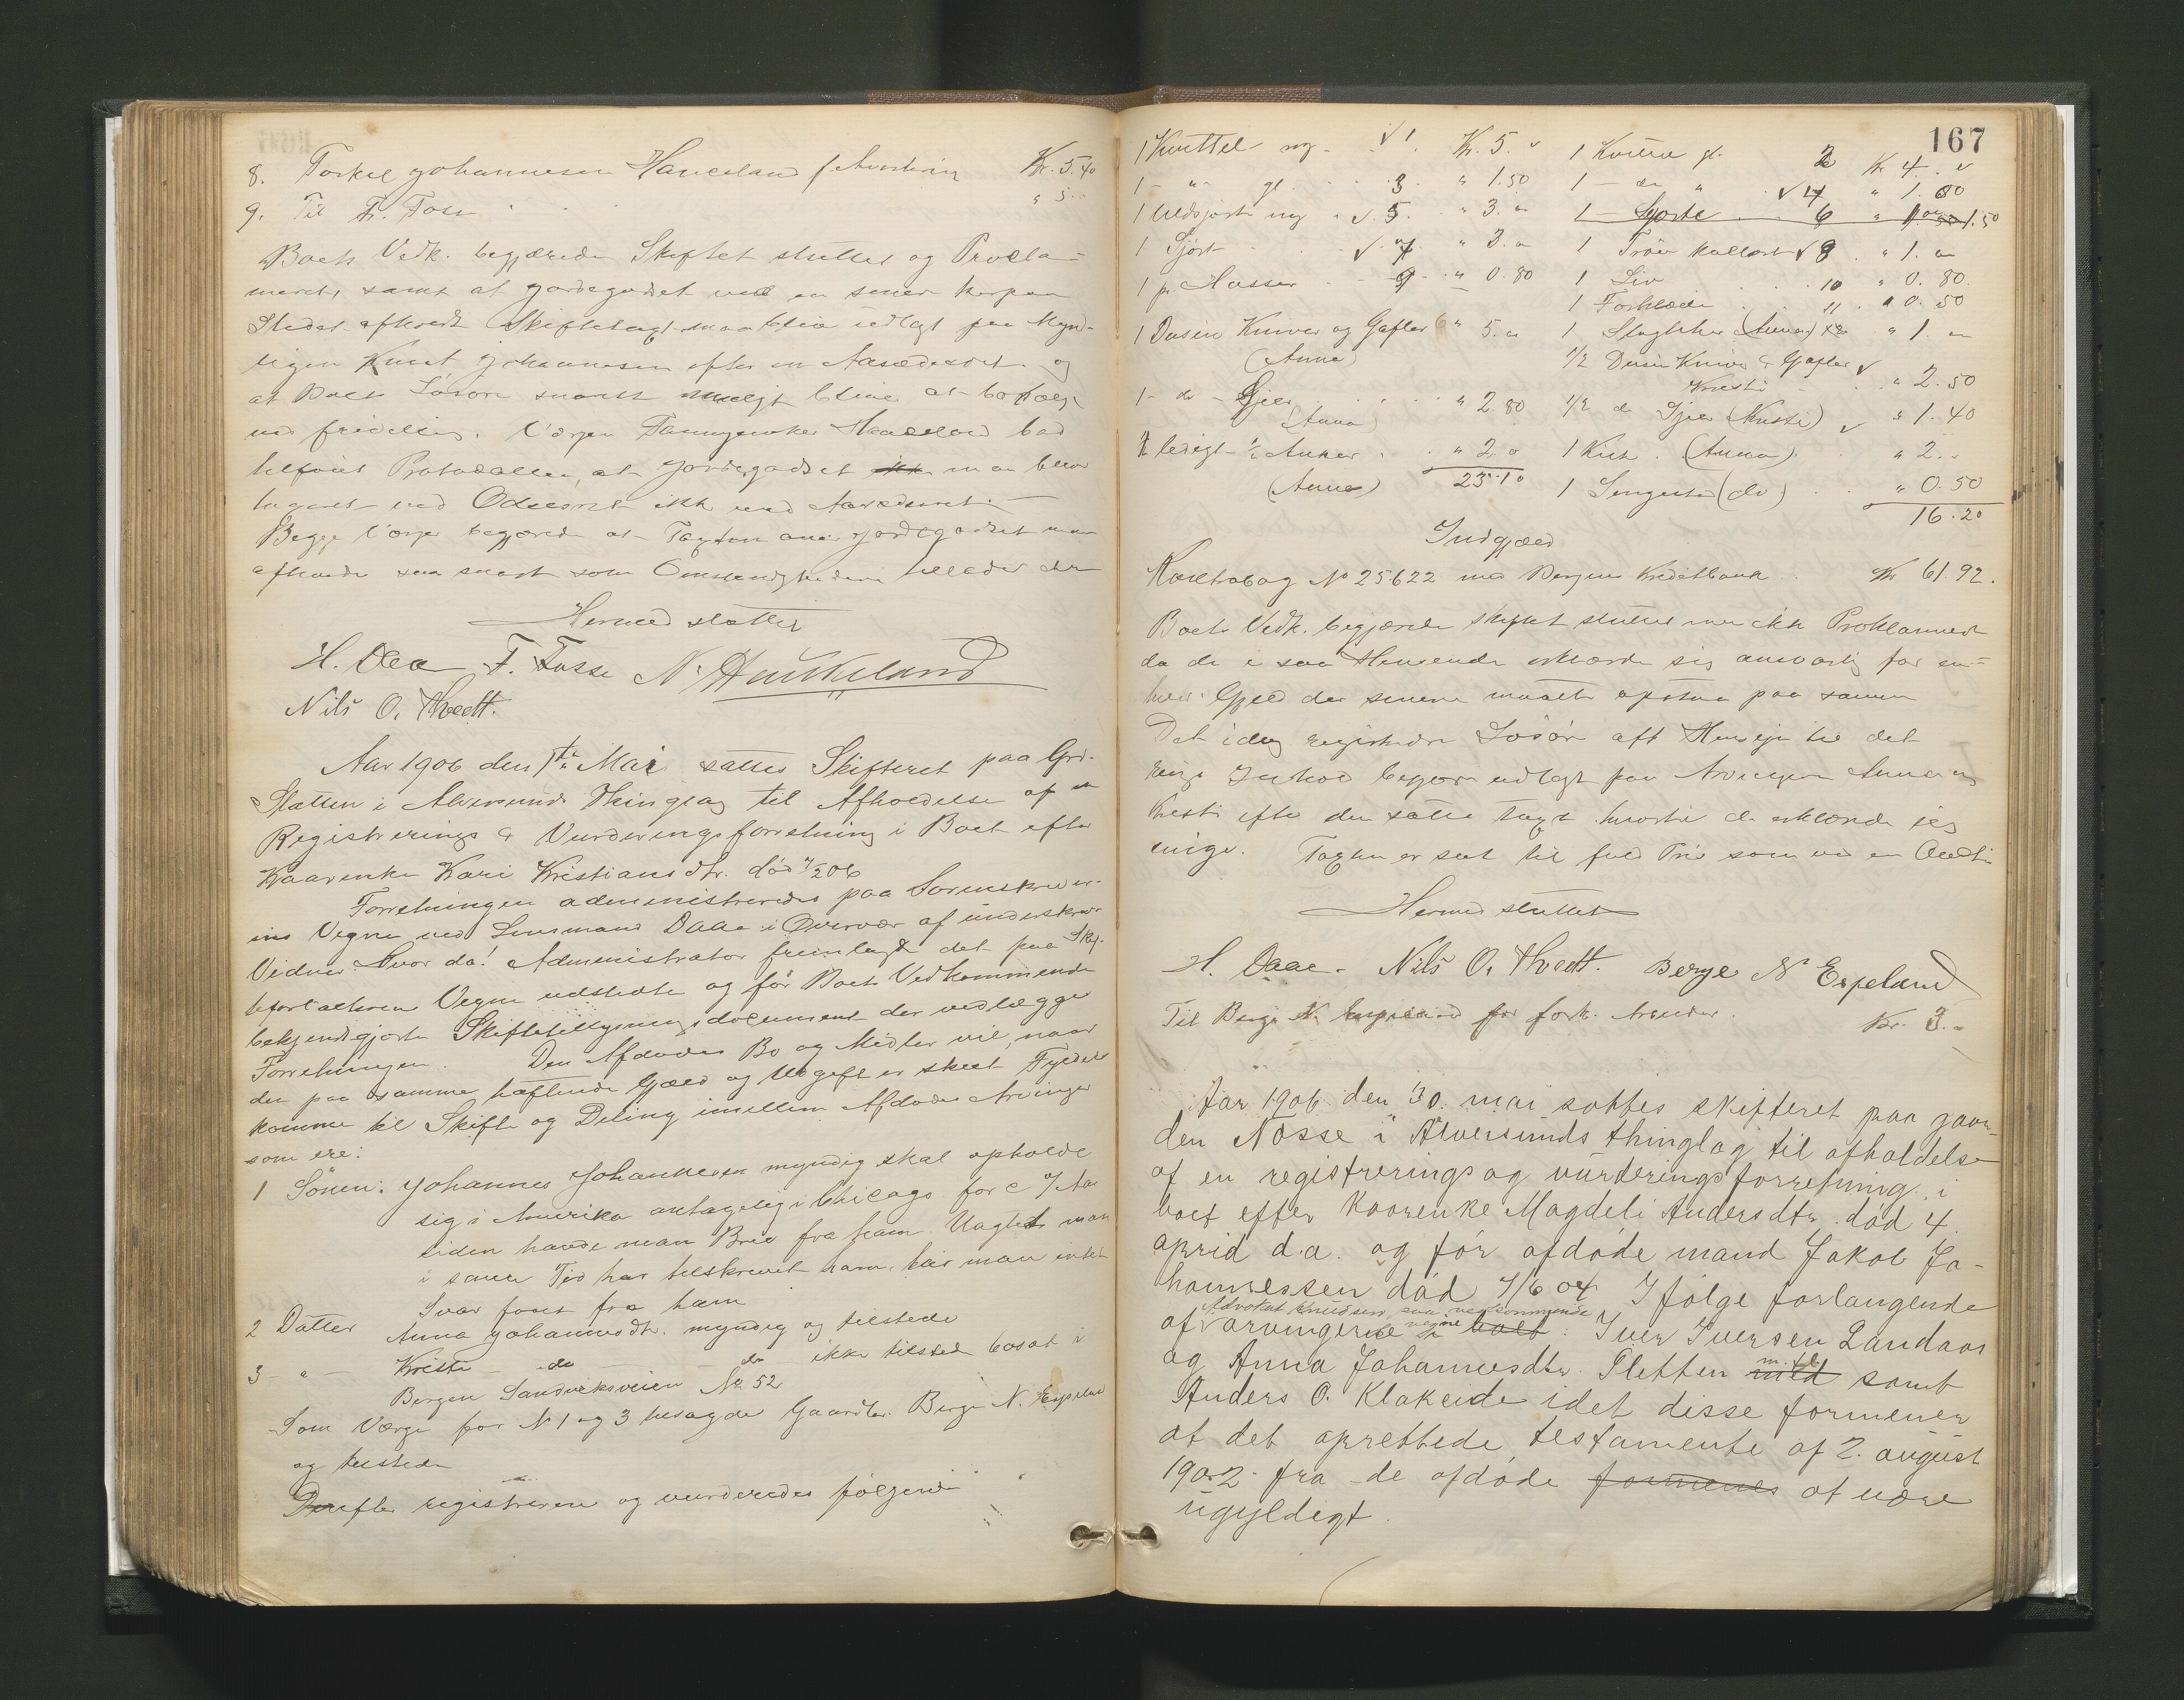 8. Torkel Johannesen Haukeland f Kr. 5.40
9. Til Fr. Foss " 5.
Boets Vedk. begjærede Skiftet sluttet og Procla-
meret, samt at jordegodset ved en senere
Stedet afholdt Skiftetagt maa blive udlagt paa Myn-
digen Knut Johannesen efter en Aasædesret og
at Boets Løsøre snarest muligt blive at
ved frivillig. Værgen Haukeland bad
tilføiet Protocollen, at Jordegodset ikke maa blive
taget ved Odelsret ikke ved Aasædesret. —
Begge Værger begjærede at Taxten over Jordegodset maa
afholdes saa snart som Omstændighederne tillader det
Hermed sluttet
H. Daae F. Fosse N. Haukeland
Nils O. Thvedt.
Aar 1906 den 1te Mai sattes Skifteret paa Grd.
Sletten i Alversunds Thinglag til Afholdelse af en
Registrerings & Vurderingsforretning i Boet efter
Kaarenke Kari Kristiansdtr. død 1/2 06
Forretningen administreredes paa Sorenskriver-
ens Vegne ved Lensmand Daae i Overvær af underskrevne
Vidner. Hvor da! Administrator fremlagde det paa Skif-
teforvalterens Vegne udstedte og for Boets Vedkommende
bekjendtgjorte Skiftetillysningsdocument der vedlægges
Forretningen. Den Afdødes Bo og Midler vil, naar
den paa samme hæftende Gjæld og Udgift er skeet Fyldest
komme til Skifte og Deling imellem Afdødes Arvinger
som ere:
1 Sönen: Johannes Johannesen myndig skal opholde
sig i Amerika antagelig i Chicago for c 7 Aar
siden havde man Brev fra ham. Uagtet man
i samme Tid har tilskrevet ham, har man intet
Svar faaet fra ham
2 Datter Anna Johannesdtr. myndig og tilstede
3 — " — Kristi — do — do ikke tilstede bosat i
Bergen Sandviksveien No 52
Som Værge for N 1 og 3 Gaardbr. Berge N. Espeland
og tilstede
Derefter registreredes og vurderedes følgende
167
1 Kuittel ny √ 1. Kr. 5. " 1 Kuittel gl. 2 Kr 4. "
1 — " — gl. 3 " 1.50 1 — do " √ 4 " 1.00
1 Uldskjört ny √ 5 " 3. " 1 — Skjorte 6 " 1.50
1 Skjört √ 7 " 3. " 1 Tröie √ 8 " 1. "
1 pr Hosser 9 " 0.80 1 Liv 10 " 0.80
1 Forklæde 11 " 0.50
1 Dusin Kniver og Gafler " 5. " 1 (Anna) " 1. "
(Anna) 1/2 Dusin Kniver & Gafler √
Kristi " 2.50
1 — do — Skjeer " 2.80 1/2 do Skjeer (Kristi) √ " 1.40
(Anna)
1 ledigt 1/2 Anker " 2. 0 1 Kiste (Anna) " 2. "
(Anna) 23.10 1 Sengested (do) " 0.50
16.20
Indgjæld
Kontrabog No 25622 med Bergens Kreditbank Kr 61.92.
Boets Vedk. begjærede skiftet sluttet men ikke Proklameret
da de i saa Henseende erklærede sig ansvarlig for en-
hver Gjæld der senere maatte opstaa paa samme
Det idag registrerede Løsøre
udlagt paa Arvingerne Anna og
Kristi efter den satte Taxt hvorti de erklærede sig
enige. Taxten er sat til fuld Pris som ved en Auktion
Hermed sluttet
H. Daae. Nils O. Thvedt. Berge N Espeland
Til Berge N. Espeland for fork. Kr. 3. "
Aar 1906 den 30. mai sattes skifteret paa gaar-
den Nøsse i Alversunds thinglag til afholdelse
af en registrerings og vurderingsforretning i
boet efter kaarenke Magdeli Andersdtr. død 4.
april d.a. og før afdøde mand Jakob Jo-
hannessen død 7/6 04 Ifølge forlangende
Advokat Knudsen paa vedkommende
af arvingerne vegne i boet: Iver Iversen Landaas
og Anna Johannesdtr. Sletten med m. fl. samt
Anders O. Klakeide idet disse formener
at det oprettede testamente af 2. august
1902 fra de afdøde formenes at være
ugyldigt.